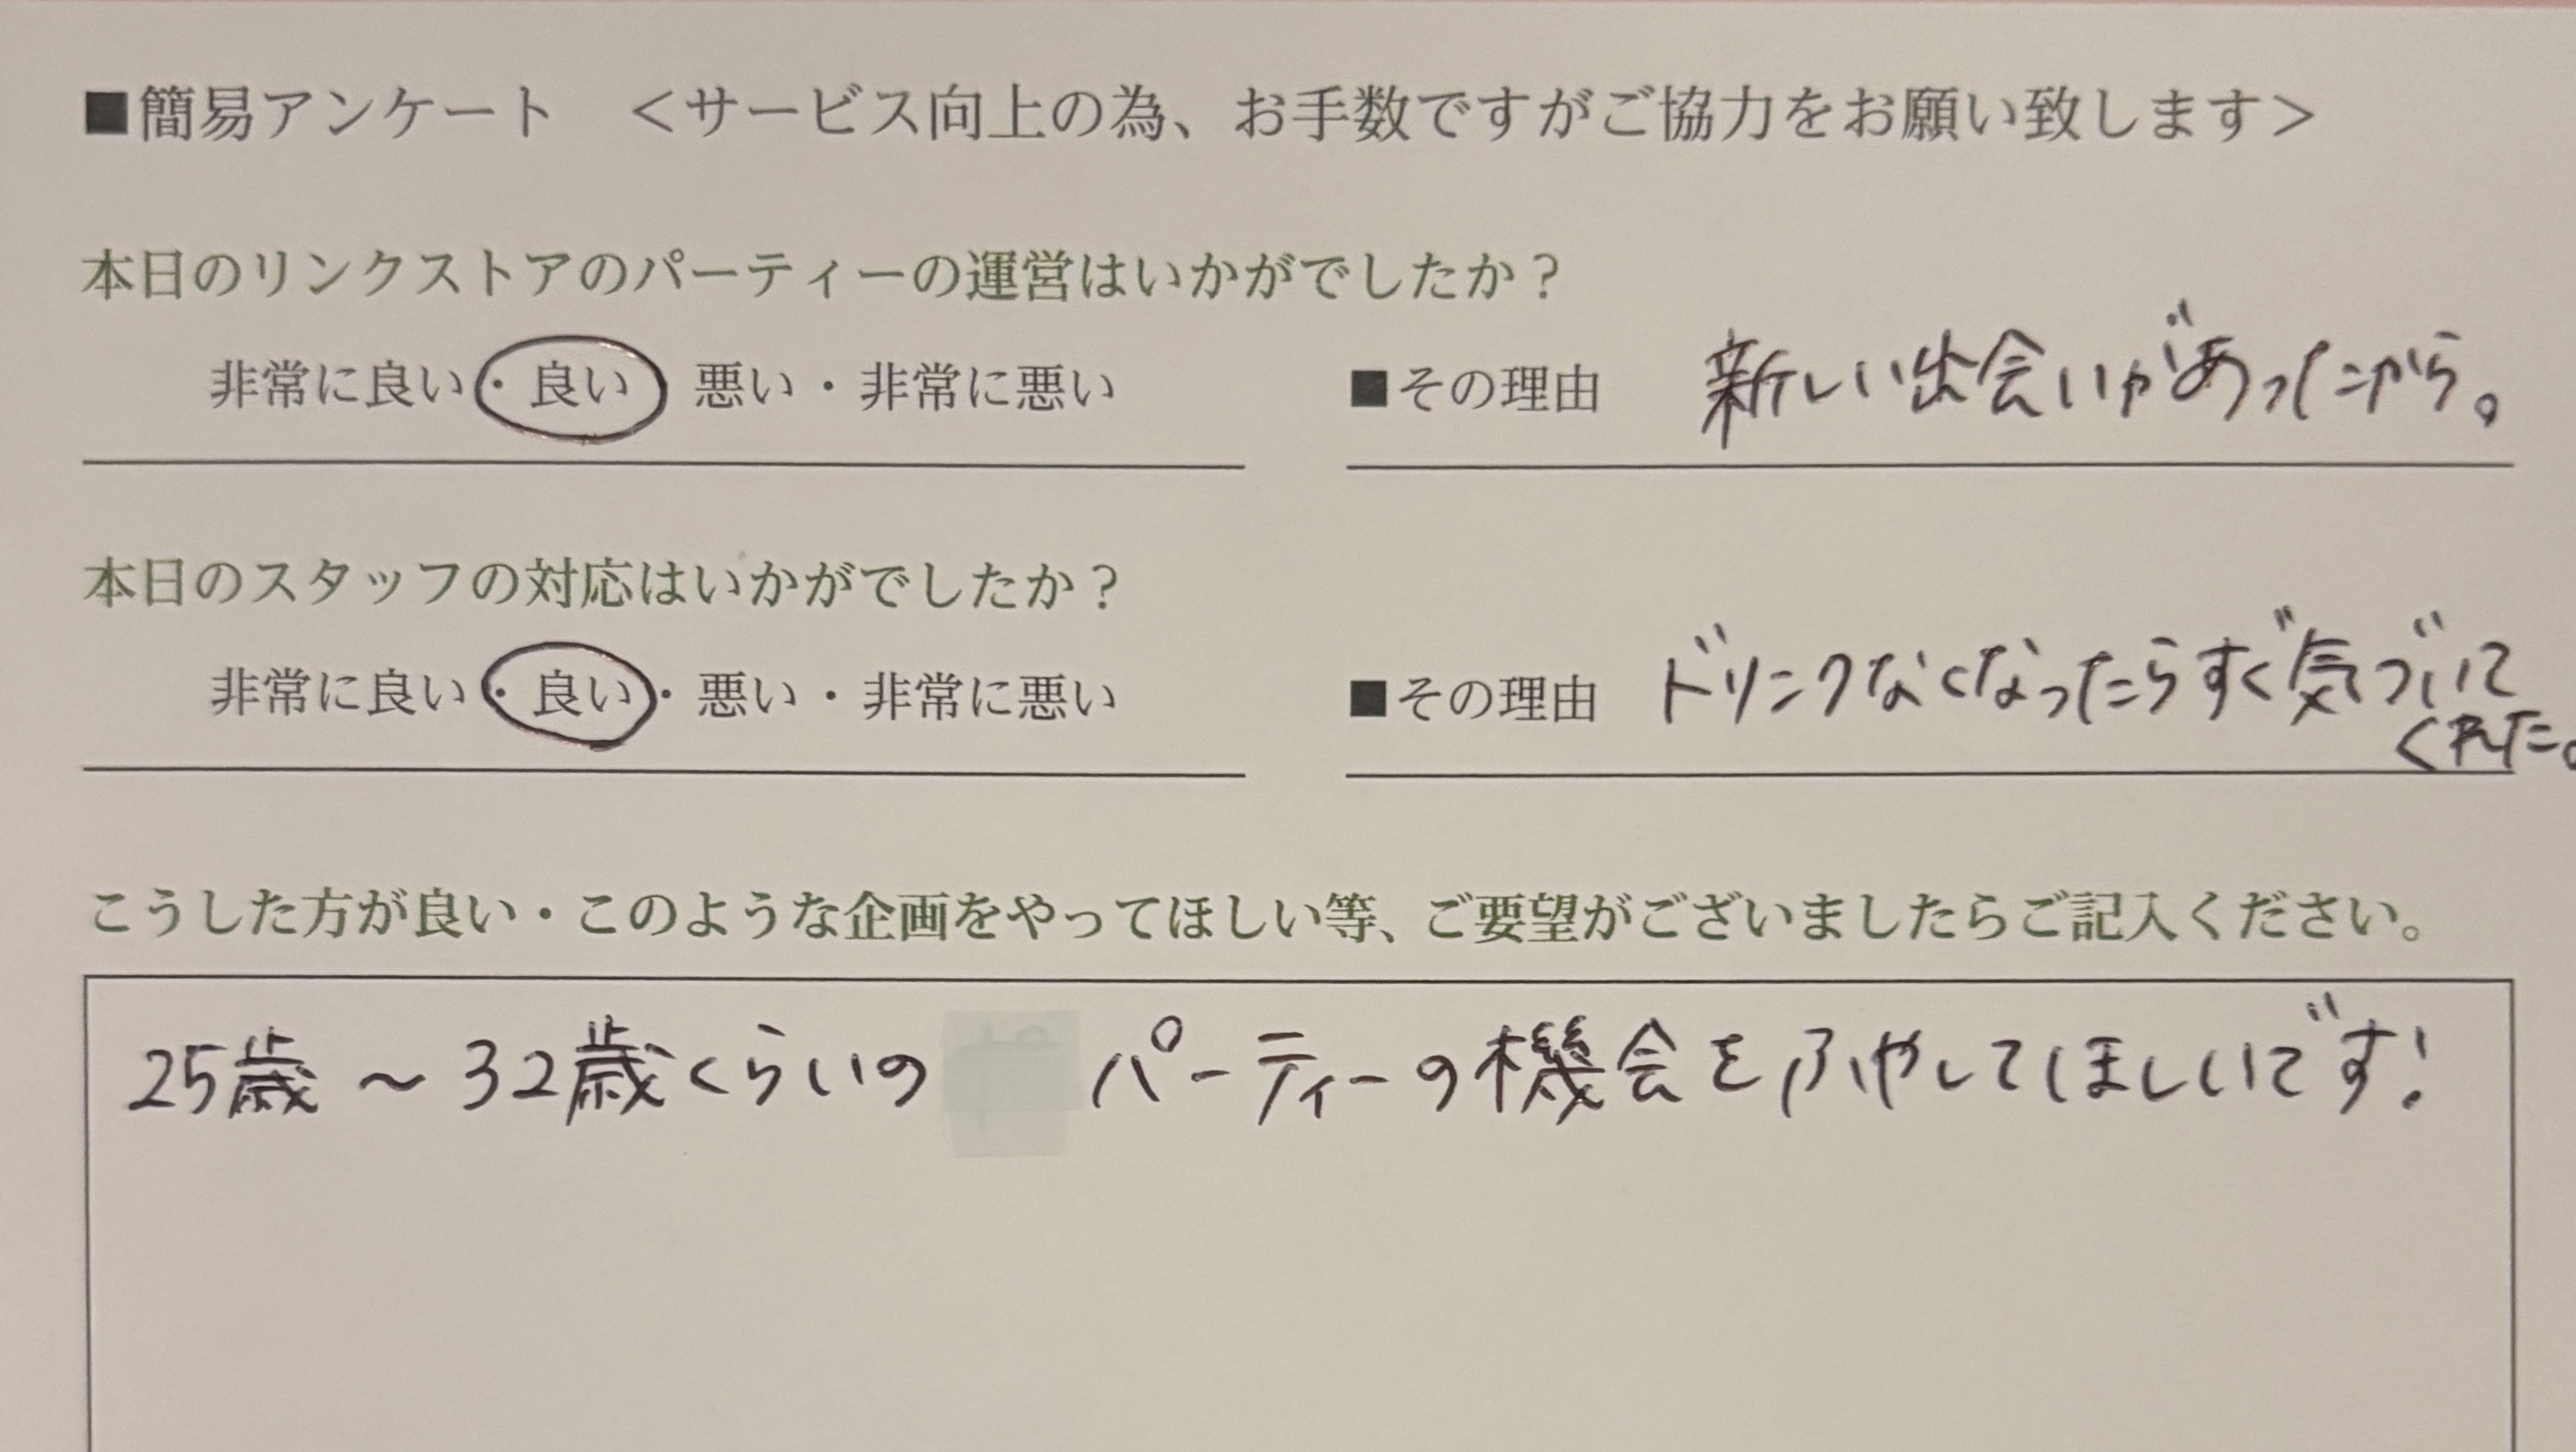 ■簡易アンケート　＜サービス向上の為、お手数ですがご協力をお願い致します＞
本日のリンクストアのパーティーの運営はいかがでしたか？
非常に良い・良い 悪い・非常に悪い　■その理由　新しい出会いがあったから。
本日のスタッフの対応はいかがでしたか？
非常に良い・良い・悪い・非常に悪い　■その理由　ドリンクなくなったらすぐ気づいて
くれた。
こうした方が良い・このような企画をやってほしい等、ご要望がございましたらご記入ください。
25歳～32歳くらいの パーティーの機会をふやしてほしいです！